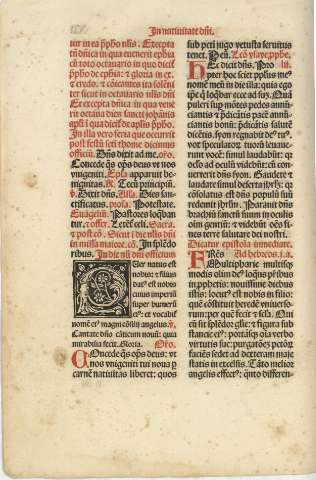 In natiuitate dñi.
tur in ea pphõ nlis. Excepta
tñ dñica in qua euenerit ephia
cũ toto octauario in quo dicif
pphõ de ephia: et gloria in et.
et credo. et cõicantes in solẽni
ter vt in die sancto nlis dñi
Et excepta dñica in qua vene
rit octaua diei sancti iohãnis
In illa vero feria que occurrit
post festũ scti thome dicimus
officiũ. Dñs dixit ad me. oro.
Concede qs ops deus vt nos
vnigeniti. Epla apparuit be-
nignitas. Tecũ principiũ.
Dñs dixit. Dies san-
ctificatus. prosa. Potestate.
Euãgeliũ. Pastores loqban
tur. offer. Letẽt celi. Sacra.
et postcõ. Sicut in die nlis dñi
in missa maiore. cõ. In splẽdo
ribus. In die nlis dñi officium
Uer natus est
nobis: et filius
datus est nobis
cuius imperiũ
super humerũ
eius: et vocabit
nomẽ eius magni cõsilij angelus.
Cantate dño cãticum nouũ: quia
mirabilia fecit. Gloria. Oro.
Oncede qs ops deus: vt
nos vnigeniti tui noua p
carnẽ natiuitas liberet: quos
sub peti iugo vetusta seruitus
tenet. Per eũ.
Hec dicit dñs. Pro
pter hoc sciet pplus meus
nomẽ meũ in die illa: quia ego
ipse q loqbar ecce adsum. Qua
pulcri super mõtes pedes annũ
ciantis et pdicãtis pacẽ: annũ
ciantis bonũ: pdicãtis salutẽ
dicẽtis syon regnabit deus tuus.
vox speculatorũ tuorũ leuaue-
runt vocẽ: simul laudabũt: qa
oculo ad oculũ videbũt: cũ con-
uerterit dñs syon. Gaudete et
laudate simul deserta ihrlm: qa
cõsolatus est dñs populũ suũ
redemit ihrlm. Parauit dñs
brachiũ sanctũ suum in oculis
oĩm gentiũ: et videbũt oẽs fi-
nes terre salutare dei nostri.
Dicatur epistola immediate.
Ad hebreos. i. a.
Fratres
Multipharie multisqs
modis olim deus loqns pribus
in pphetis: nouissime diebus
istis: locutus est nobis in filio:
quẽ cõstituit heredẽ vniuerso-
rum: per quẽ fecit et scla. Qui
cũ sit splẽdor glie: et figura sub
stantie eius: portãsqs oĩa verbo
virtutis sue: purgatõẽ petõrũ
faciẽs sedet ad dexteram maie
statis in excelsis: Tãto melior
angelis effectus: qnto differen-